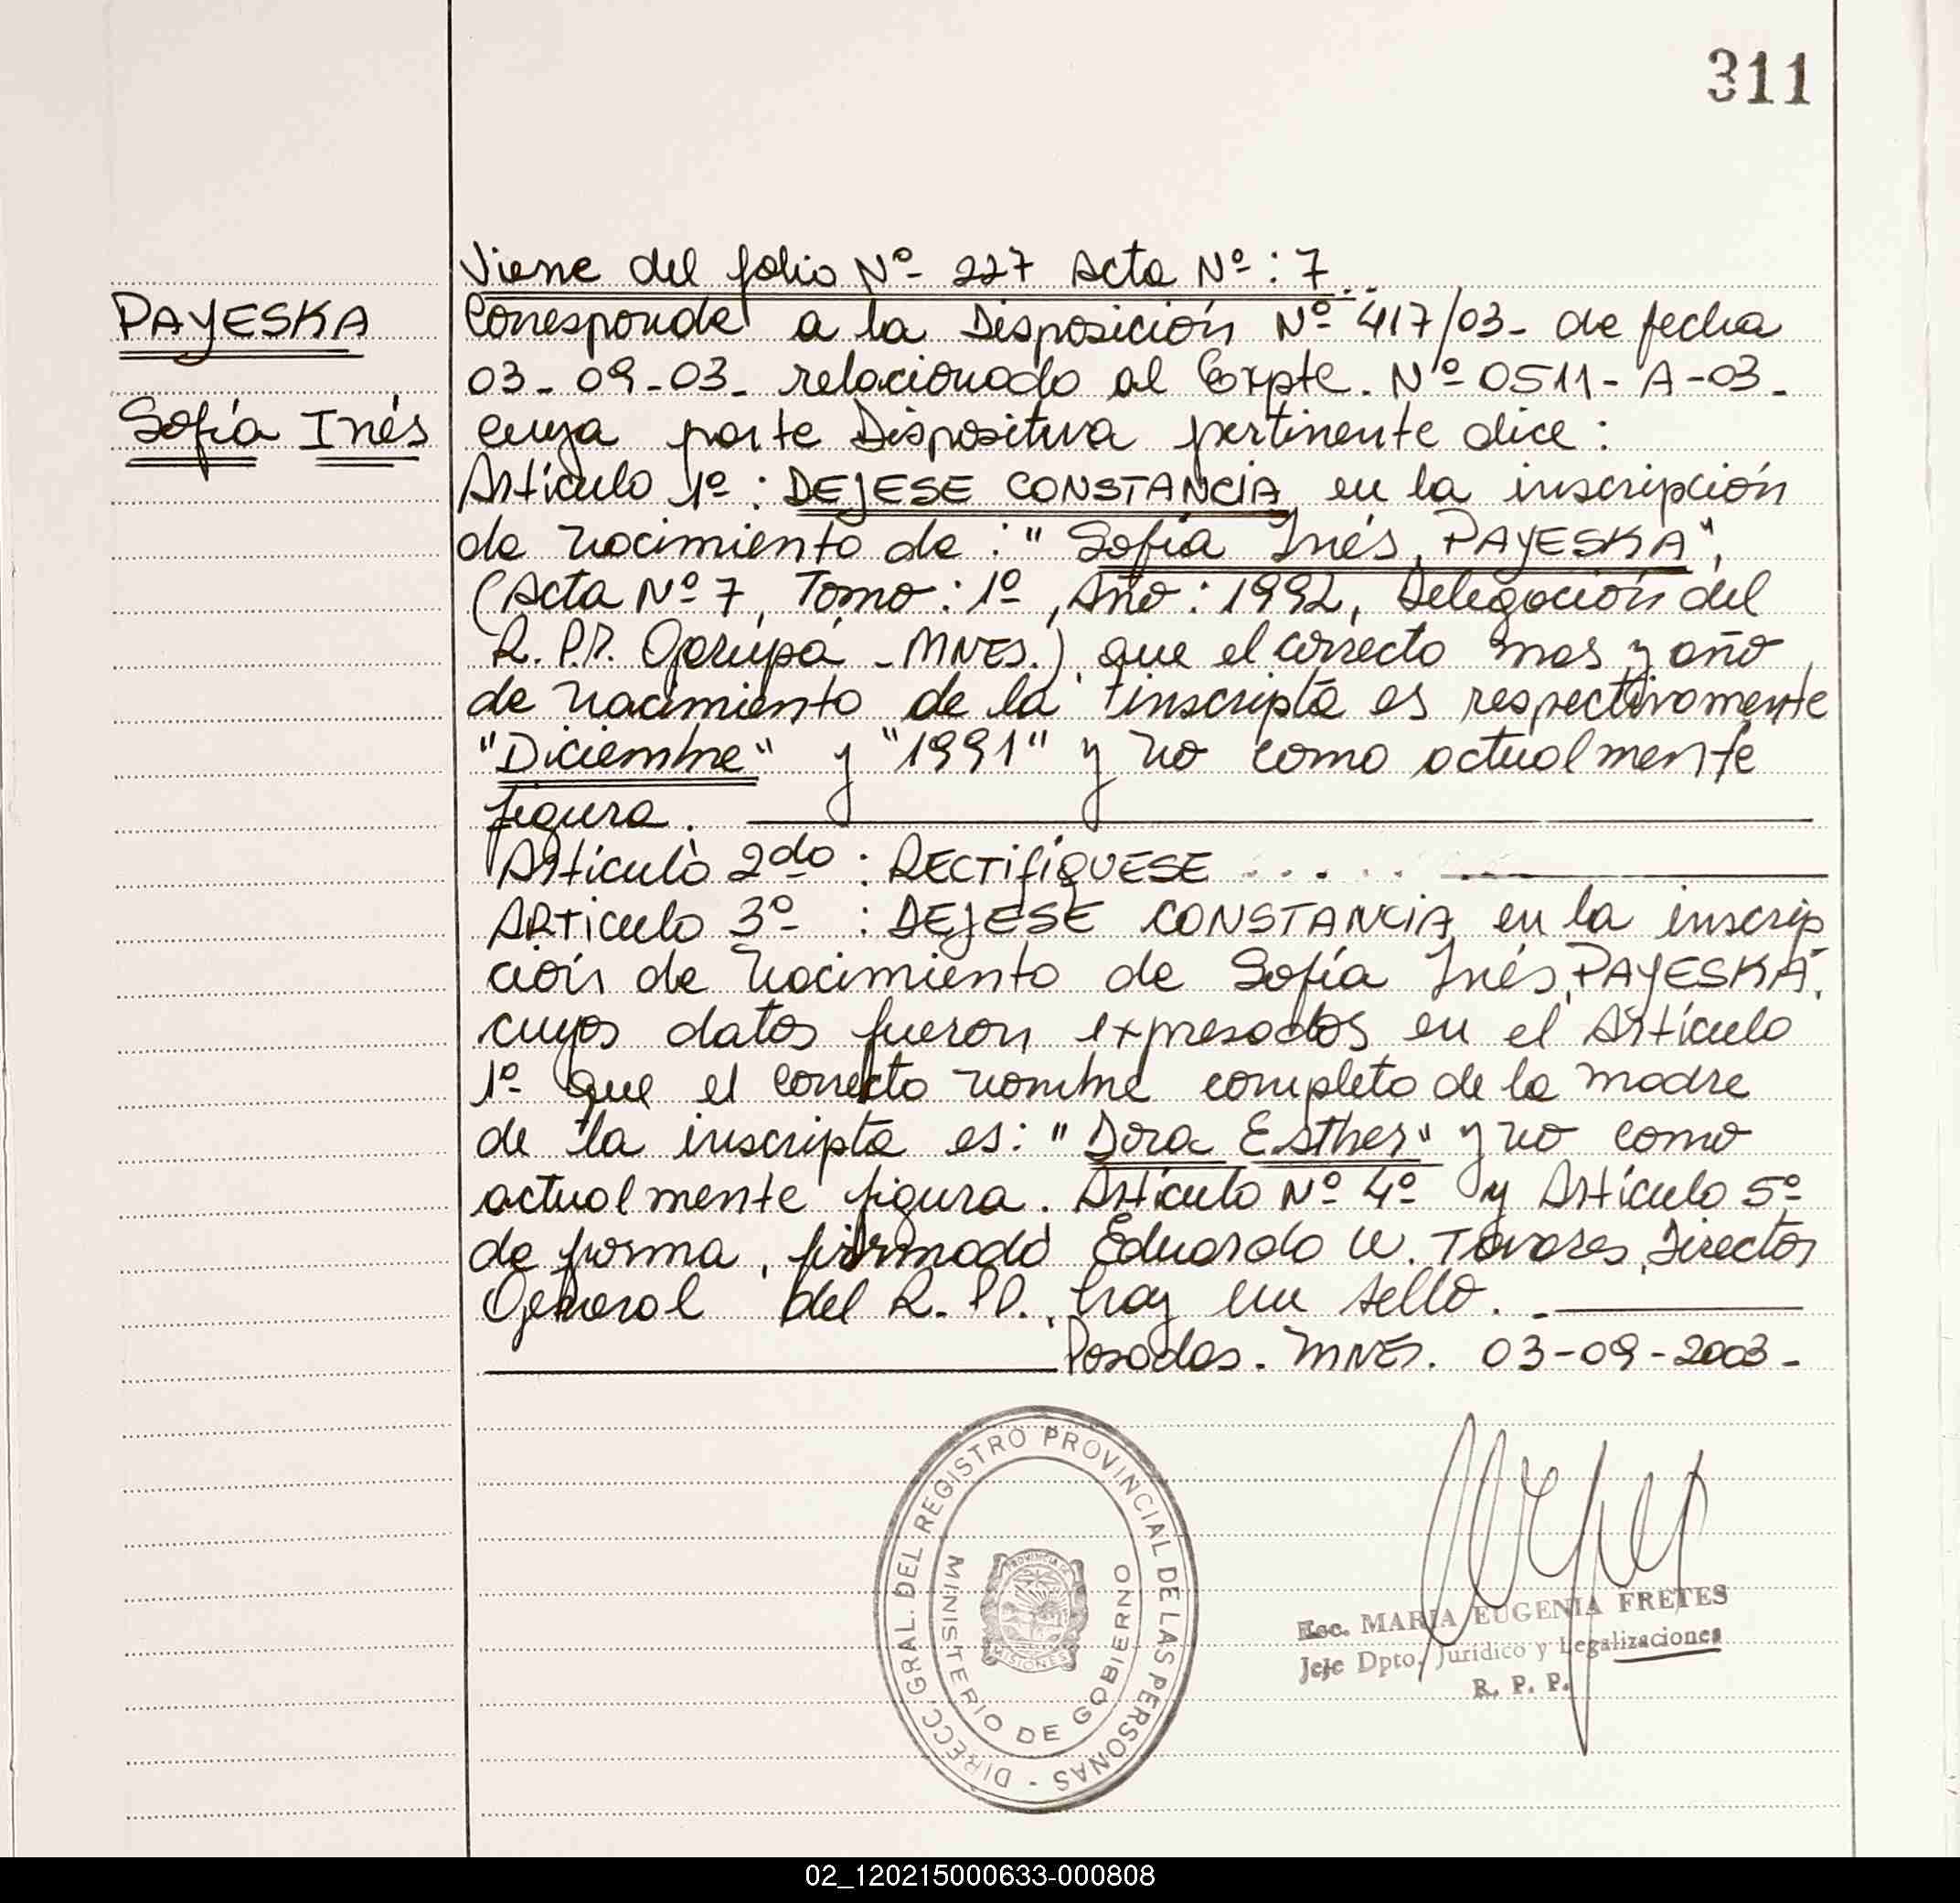 311
Viene del folio Nº 227 Acta Nº: 7
PAYESKA
Corresponde a la Disposición Nº 417/03- de fecha
03-09-03- relacionado al Expte. Nº 0511-A-03-
Sofía Inés
cuya parte Dispositiva pertinente dice:
Artículo 1º: DEJESE CONSTANCIA en la inscripción
de nacimiento de: "Sofía Inés, PAYESKA",
(Acta Nº 7, Tomo: 1º, Año: 1992, Delegación del
R.P.P. Garupá - MNES.) que el correcto mes y año
de nacimiento de la inscripta es respectivamente
"Diciembre" y "1991" y no como actualmente
figura.
Artículo 2do: RECTIFIQUESE .....
ARTiculo 3º : DEJESE CONSTANCIA en la inscrip
ción de nacimiento de Sofía Inés, PAYESKA,
cuyos datos fueron expresados en el Artículo
1º que el correcto nombre completo de la madre
de la inscripta es: "Dora Esther" y no como
actualmente figura. Artículo Nº 4º y Artículo 5º
de forma, firmado Eduardo W. Tavares, Director
General del R.P.P., hay un sello.
Posadas. MNES. 03-09-2003-
DIRECC. GRAL. DEL REGISTRO PROVINCIAL DE LAS PERSONAS -
MINISTERIO DE GOBIERNO
PROVINCIA DE
MISIONES
Esc. MARIA EUGENIA FRETES
Jefe Dpto. Jurídico y Legalizaciones
R. P. P.
02_120215000633-000808